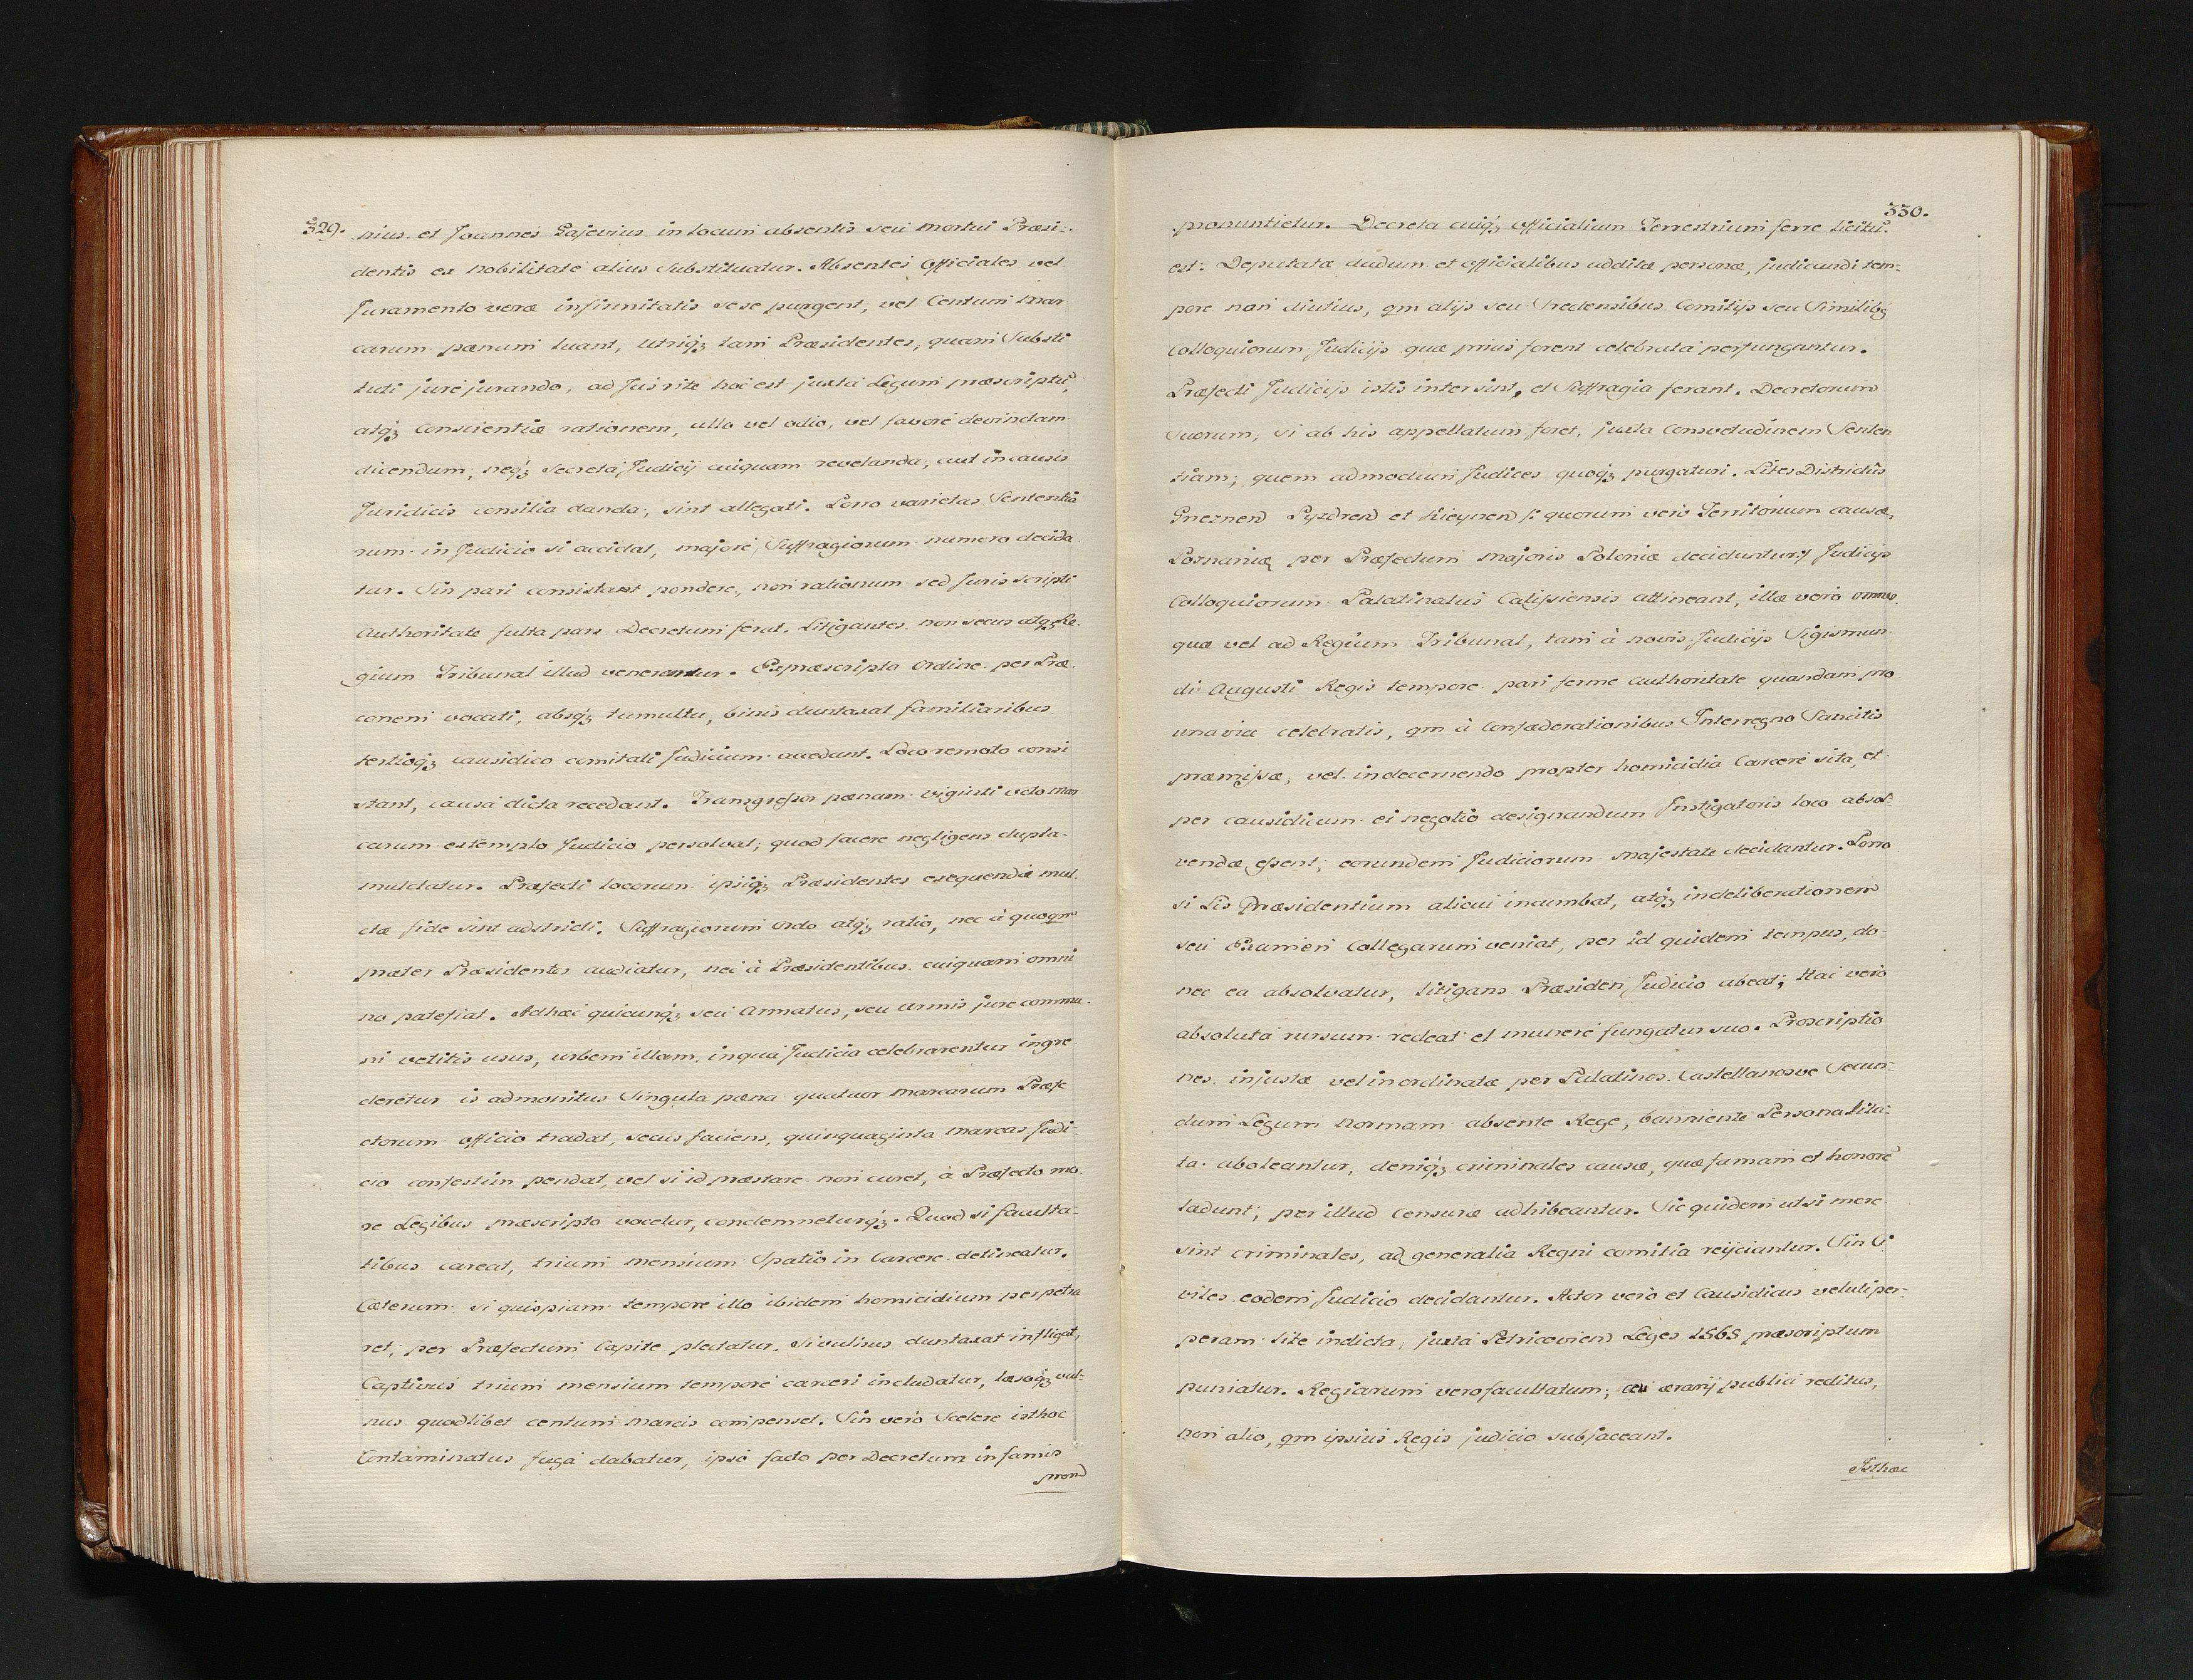 329.
nius et Joannes Gajevius in locum absentis seu mortui Præsi-
dentis ex nobilitate alius Substituatur. Absentes Officiales vel
Juramento veræ infirmitatis sese purgent, vel Centum mar
carum pœnam luant, utriq́ꝫ tam Præsidentes, quam Substi
tuti jure jurando, ad Jus rite hoc est juxta Legum præscriptũ,
atq́ꝫ Conscientiæ rationem, ullo vel odio, vel favore devinctam
dicendum, neq́ꝫ secreta Judicij cuiquam revelanda, aut in causis
Juridicis consilia danda, sint allegati. Porro varietas Sententia
rum in Judicio si accidat, majore Suffragiorum numero decida
tur. Sin pari consistant pondere, non rationum sed Juris scripti
Authoritate fulta pars Decretum ferat. Litigantes non secus atq́ꝫ Re-
gium Tribunal illud venerentur. Expræscripto Ordine per Præ
conem vocati, absq́ꝫ tumultu, binis duntaxat familiaribus
tertioq́ꝫ causidico comitati Judicium accedant. Loco remoto consi
stant, causa dicta recedant. Transgressor pœnam viginti octo mar
carum extemplo Judicio persolvat, quod facere negligens dupla-
mulctatur. Præfecti locorum ipsiq́ꝫ Præsidentes exequendæ mul
ctæ fide sint adstricti. Suffragiorum Ordo atq́ꝫ ratio, nec à quoqm
præter Præsidentes audiatur, nec à Præsidentibus cuiquam omni
no patefiat. Adhæc quicunq́ꝫ seu Armatus, seu armis jure commu-
ni vetitis usus, urbem illam, in qua Judicia celebrarentur ingre
deretur is admonitus Singula pæna quatuor marcarum Præfe
ctorum officio tradat, secus faciens, quinquaginta marcas Judi-
cio confestim pendat, vel si id præstare non curet, à Præfecto mo
re Legibus præscripto vocetur, condemneturq́ꝫ. Quod si faculta-
tibus careat, trium mensium Spatio in Carcere detineatur.
Cæterum si quispiam tempore illo ibidem homicidium perpetra
ret, per Præfectum Capite plectatur. Si vulnus duntaxat infligat,
Captivus trium mensium tempore carceri includatur, læsoq́ꝫ vul-
nus quodlibet centum marcis compenset. Sin vero Scelere isthoc
Contaminatus fuga dabatur, ipso facto per Decretum infamis
pron
330.
pronuntietur. Decreta cuiq́ꝫ officialium Terrestrium ferre licitũ
est. Deputatæ dudum et officialibus additæ personæ, judicandi tem-
pore non diutius, qm alijs seu Sredensibus Comitijs seu Similibꝫ
Colloquiorum Judicijs quæ prius forent celebrata perfungantur.
Præfecti Judicijs istis intersint, et Suffragia ferant. Decretorum
Suorum, si ab his appellatum foret, juxta Consvetudinem Senten
tiam, quem admodum Judices quoq́ꝫ purgaturi. Lites Districtus
Gneznen Pyzdren et Kcynen /: quorum vero Territorium causæ,
Posnaniæ per Præfectum Majoris Poloniæ deciduntur :/ Judicijs
Colloquiorum Palatinatus Calissiensis attineant, illæ vero omnes
quæ vel ad Regium Tribunal, tam à novis Judicijs Sigismun
di Augusti Regis tempore pari ferme authoritate quandam pro
una vice celebratis, qm à Confœderationibus Interregno Sancitis
præmissæ, vel in decernendo propter homicidia Carcere sita, et
per causidicum ei negotio designandum Instigatoris loco absol-
vendæ, essent, eorundem Judiciorum majestate decidantur. Porro
si Lis Præsidentium alicui incumbat, atq́ꝫ in deliberationem
seu Examen Collegarum veniat, per id quidem tempus, do-
nec ea absolvatur, litigans Præsiden Judicio abeat, Hac vero
absoluta rursum redeat et munere fungatur suo. Proscriptio
nes injustæ vel inordinatæ per Palatinos Castellanosve Secun-
dum Legum Normam absente Rege, banniente Persona lita-
ta aboleantur, deniq́ꝫ criminales causæ, quæ famam et honorẽ
lædunt, per illud Censuræ adhibeantur. Sic quidem ut si mere
sint criminales, ad generalia Regni comitia reijciantur. Sin Ci
viles eodem Judicio decidantur. Actor vero et Causidicus veluti per-
peram lite indicta, juxta Petricovien Leges 1565 præscriptum
puniatur. Regiarum vero facultatum, ceu ærarij publici reditus,
non alio, qm ipsius Regis judicio subjaceant.
Isthæc